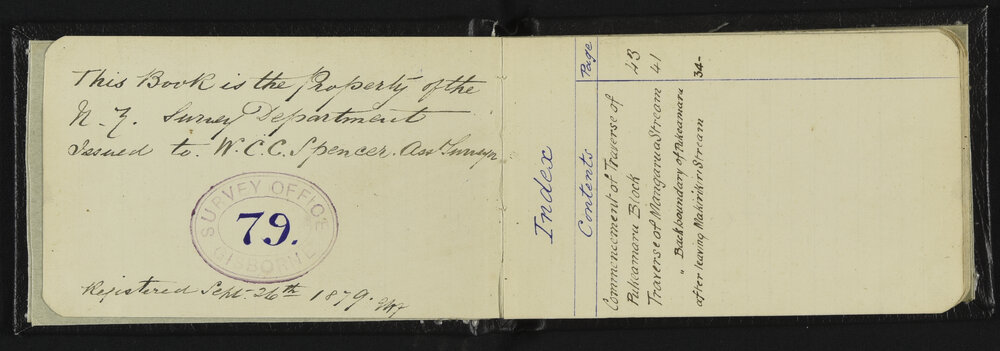 This Book is the Property of the
N.Z. Survey Department
Issued to. W.C.C. Spencer. Asst Surveyor
SURVEY OFFICE
79.
GISBORNE
Registered Sept. 26th 1879.
Index
Contents Page
Commencement of Traverse of
Pukeamaru Block 43
Traverse of Mangarua Stream 41
" Back boundary of Pukeamaru
after leaving Makirikiri Stream 34-